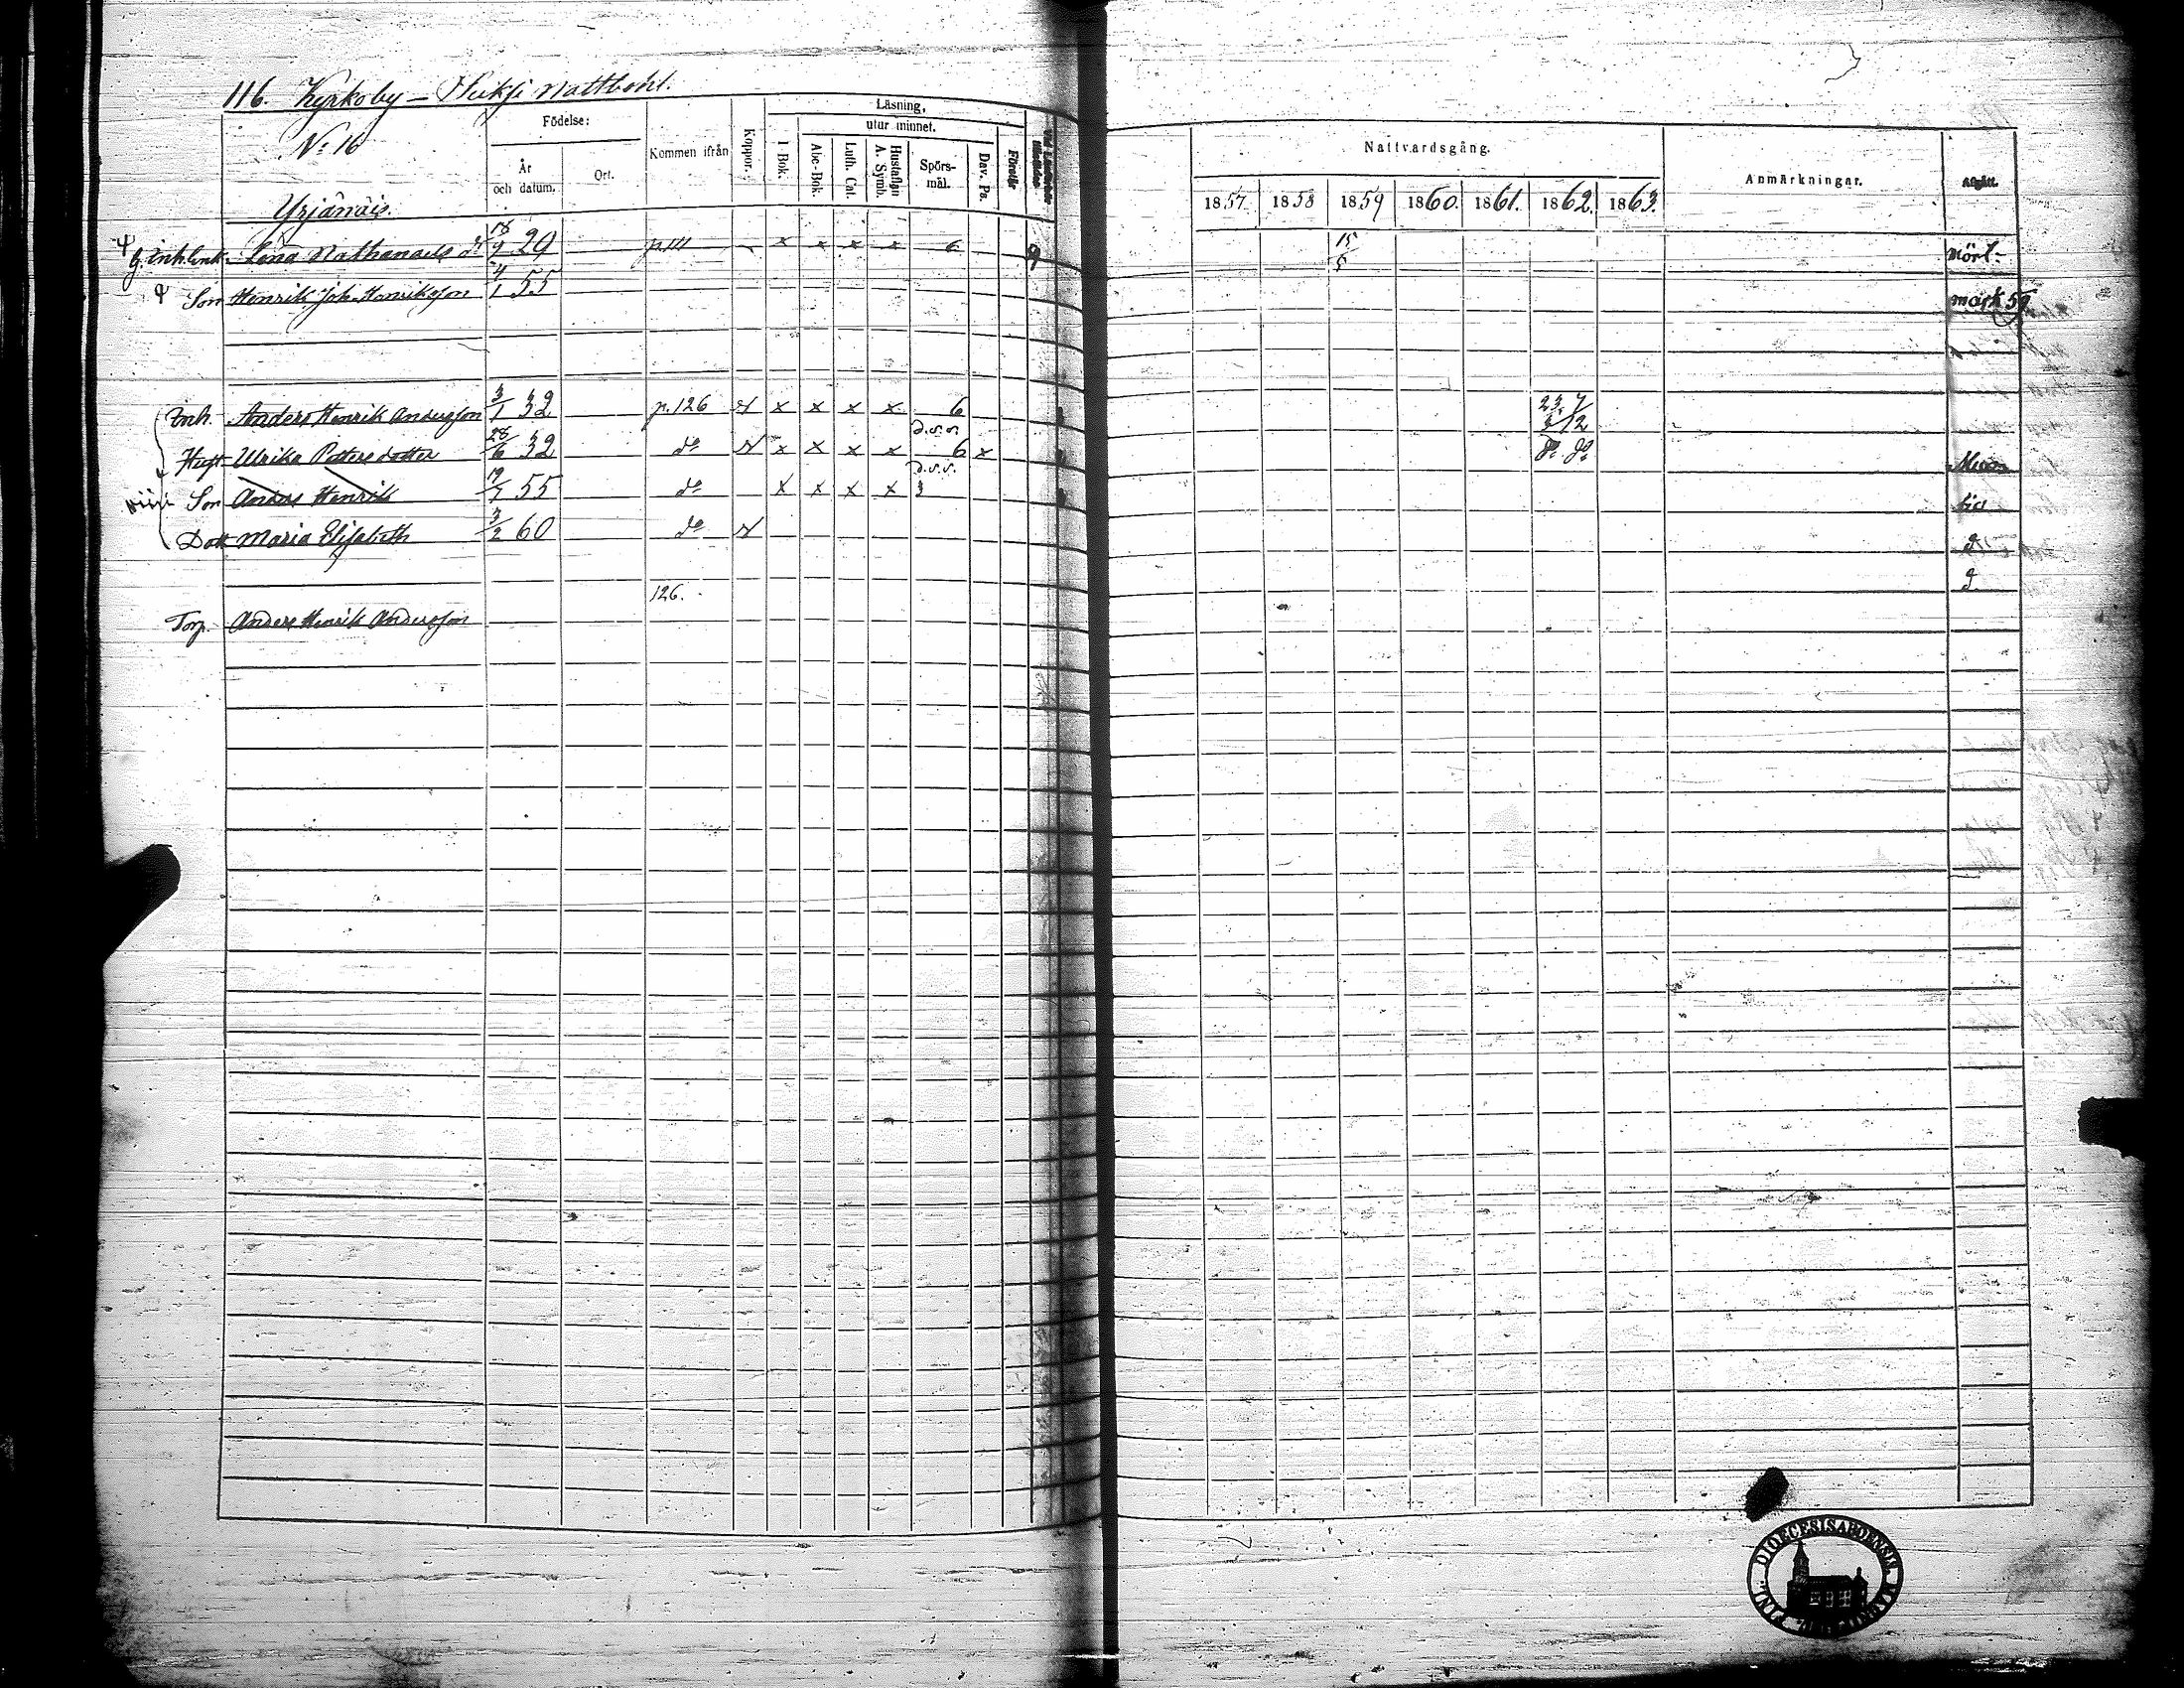 116. Kyrkoby —
No 16
Födelse:
År och datum.
Ort.
Kommen ifrån
Koppor.
Läsning,
utur minnet.
I Bok.
Abc-Bok.
Luth. Cat.
Hustaflan A. Symb.
Spörsmål.
Dav. Ps.
Förstår
Nattvardsgång.
Anmärkningar.
Afgått.
1857. 1858 1859 1860. 1861. 1862. 1863.
Yrjänäis.
Lena Nathanaels dr 18/9 29 p.111 x x x x 6 9 15/5 Mört-
Son Henrik Joh. Henriksson 4/1 55 mark 59
Inh. Anders Henrik Andersson 3/1 32 p. 126 x x x x 6 23 7
Hust Ulrika Pettersdotter 28/6 32 do x x x x d.s.s. 6 x do do
Son Anders Henrik 19/7 55 do x x x x d.s.s. 3
Dott Maria Elisabeth 3/2 60 do
126.
Torp. Anders Henrik Andersson
DIOECESIS ABOENSIS